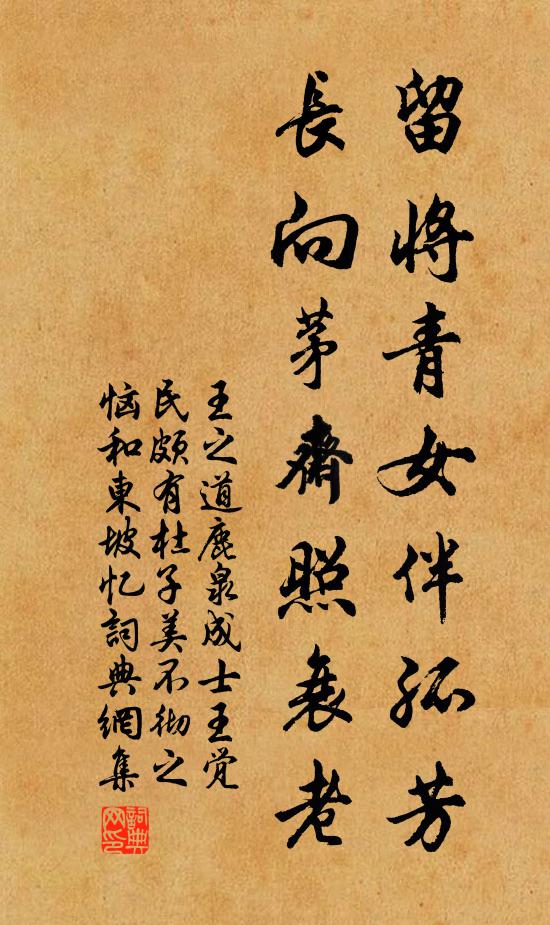 留将青女伴孤芳
長向茅齋照衰老
王之道鹿泉成士王觉
民頗有杜子美不彻之
恼和東坡忆詞典網集
詞典网印